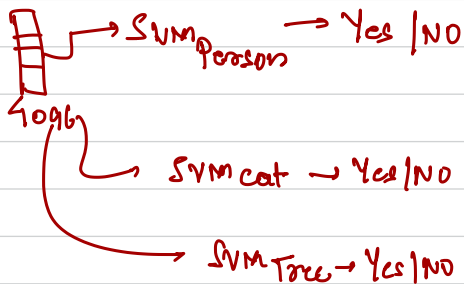 → SVM Person → Yes | NO
4096
SVM cat → Yes | NO
SVM Tree → Yes | NO